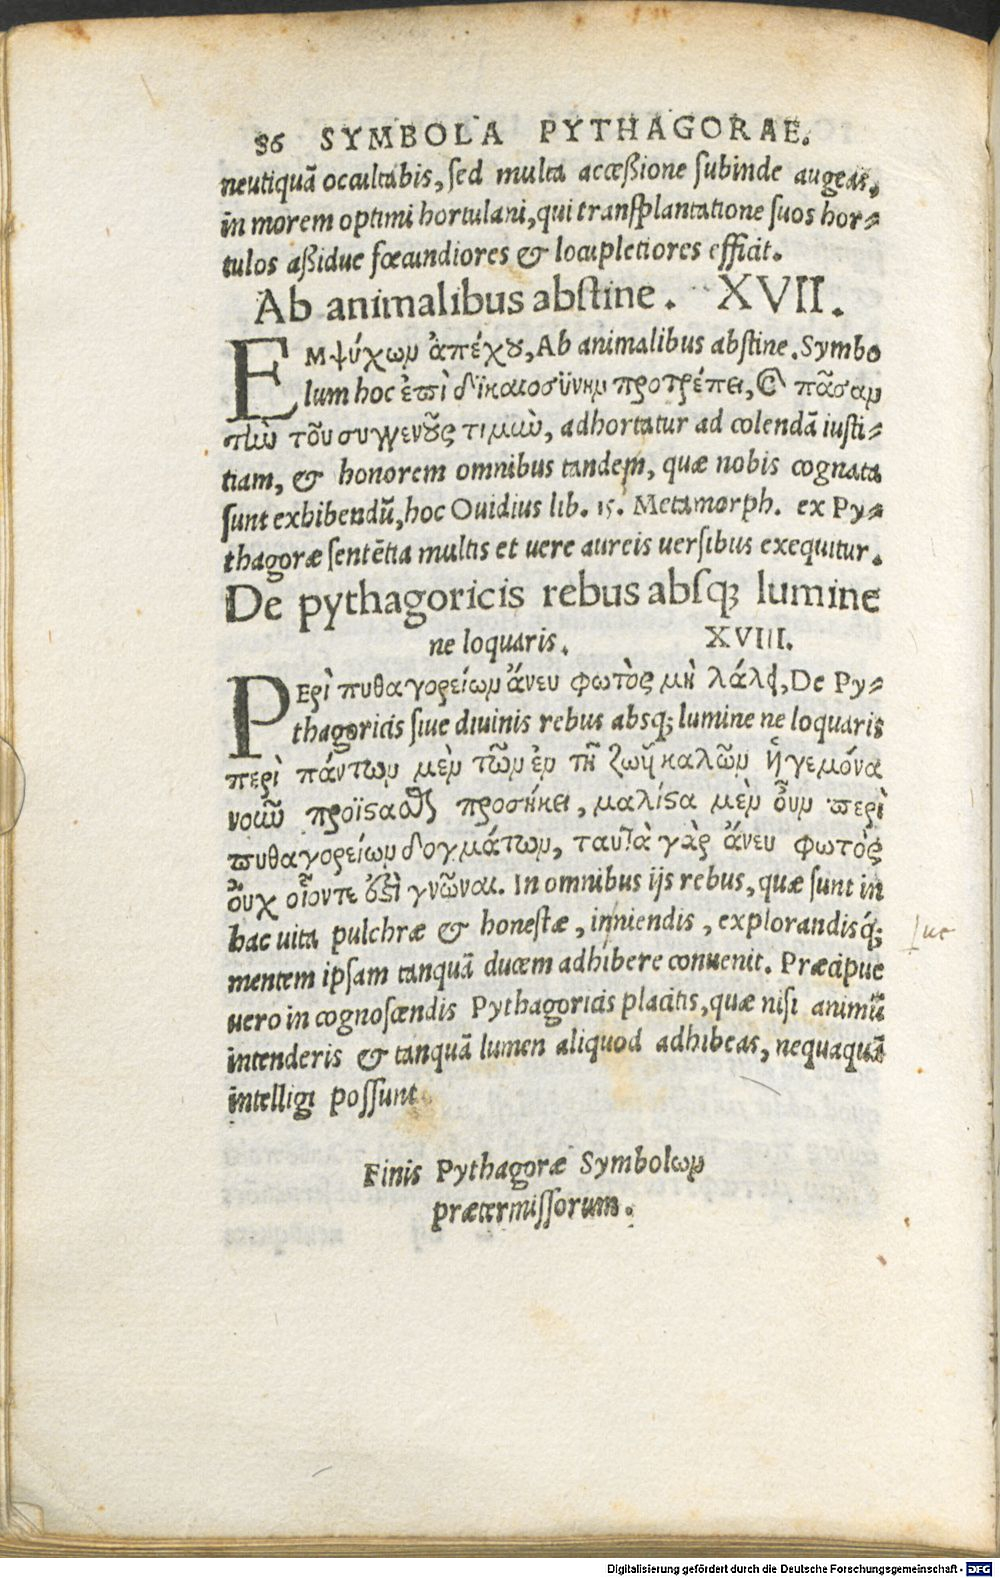 86 SYMBOLA PYTHAGORAE.
neutiquã occultabis, sed multa accessione subinde augeas,
in morem optimi hortulani, qui transplantatione suos hor-
tulos assidue fœcundiores & locupletiores efficit.
Ab animalibus abstine. XVII.
EΜψύχωμ ἀπέχου, Ab animalibus abstine. Symbo
lum hoc ἐπὶ δϊκαιοσύνημ προτρέπει, καὶ πᾶσαμ
τὴν τοῦ συγγενοῦς τιμὴν, adhortatur ad colendã iusti-
tiam, & honorem omnibus tandem, quæ nobis cognata
sunt exhibendũ, hoc Ouidius lib. 15. Metamorph. ex Py-
thagoræ sentẽtia multis et vere aureis uersibus exequitur.
De pythagoricis rebus absq; lumine
ne loquaris. XVIII.
PΕρὶ πυθαγορείωμ ἄνευ φωτὸς μὴ λάλει, De Py-
thagoricis siue diuinis rebus absq; lumine ne loquaris
περὶ πάντωμ μὲμ τῶμ ἐμ τῇ ζωῇ καλῶμ ἡγεμόνα
νοῦν προΐστασθαι προσήκει, μαλίστα μὲμ οὖμ περὶ
πυθαγορείωμ δογμάτωμ, ταυτὰ γὰρ ἄνευ φωτὸς
οὖχ οἷοντε ἐστὶ γνῶναι. In omnibus ijs rebus, quæ sunt in
hac uita pulchræ & honestæ, inniendis, explorandisq́;
mentem ipsam tanquã ducem adhibere conuenit. Præcipue
uero in cognoscendis Pythagoricis placitis, quæ nisi animũ
intenderis & tanquã lumen aliquod adhibeas, nequaquã
intelligi possunt
Finis Pythagoræ Symbolωμ
prætermissorum.
ue
Digitalisierung gefördert durch die Deutsche Forschungsgemeinschaft - DFG